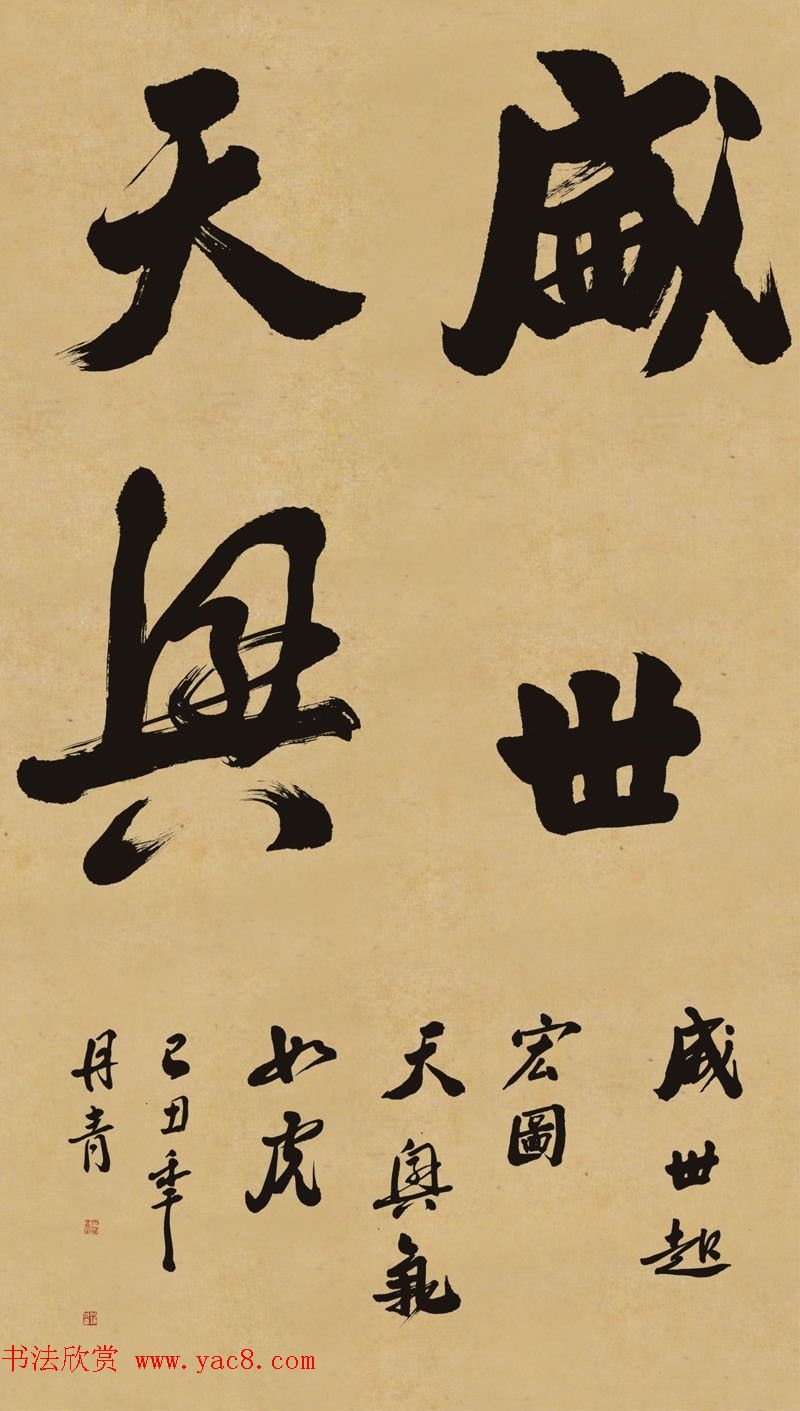 盛世
天興
盛世起
宏圖
天興氣
如虎
己丑年
丹青
书法欣赏 www.yac8.com